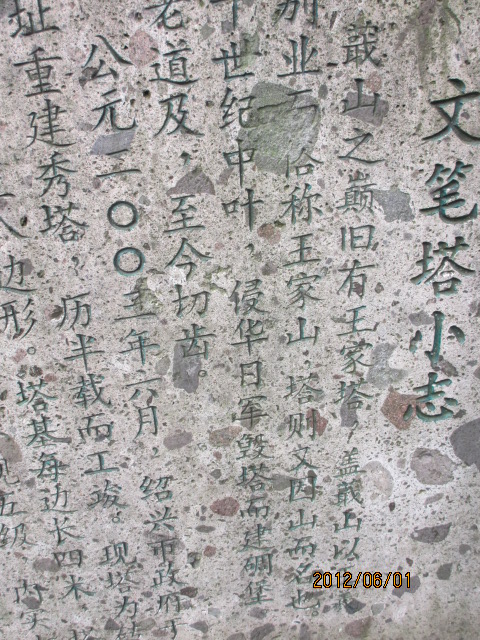 文笔塔小志
蕺山之巅旧有王家塔，盖蕺山以
别业而俗称王家山，塔则又因山而名也
十世纪中叶，侵华日军毁塔而建碉堡
老道及，至今切齿。
公元二〇〇五年六月，绍兴市政府于
址重建秀塔，历半载而工竣。现塔为
八边形。塔基每边长四米
五级 内实
2012/06/01